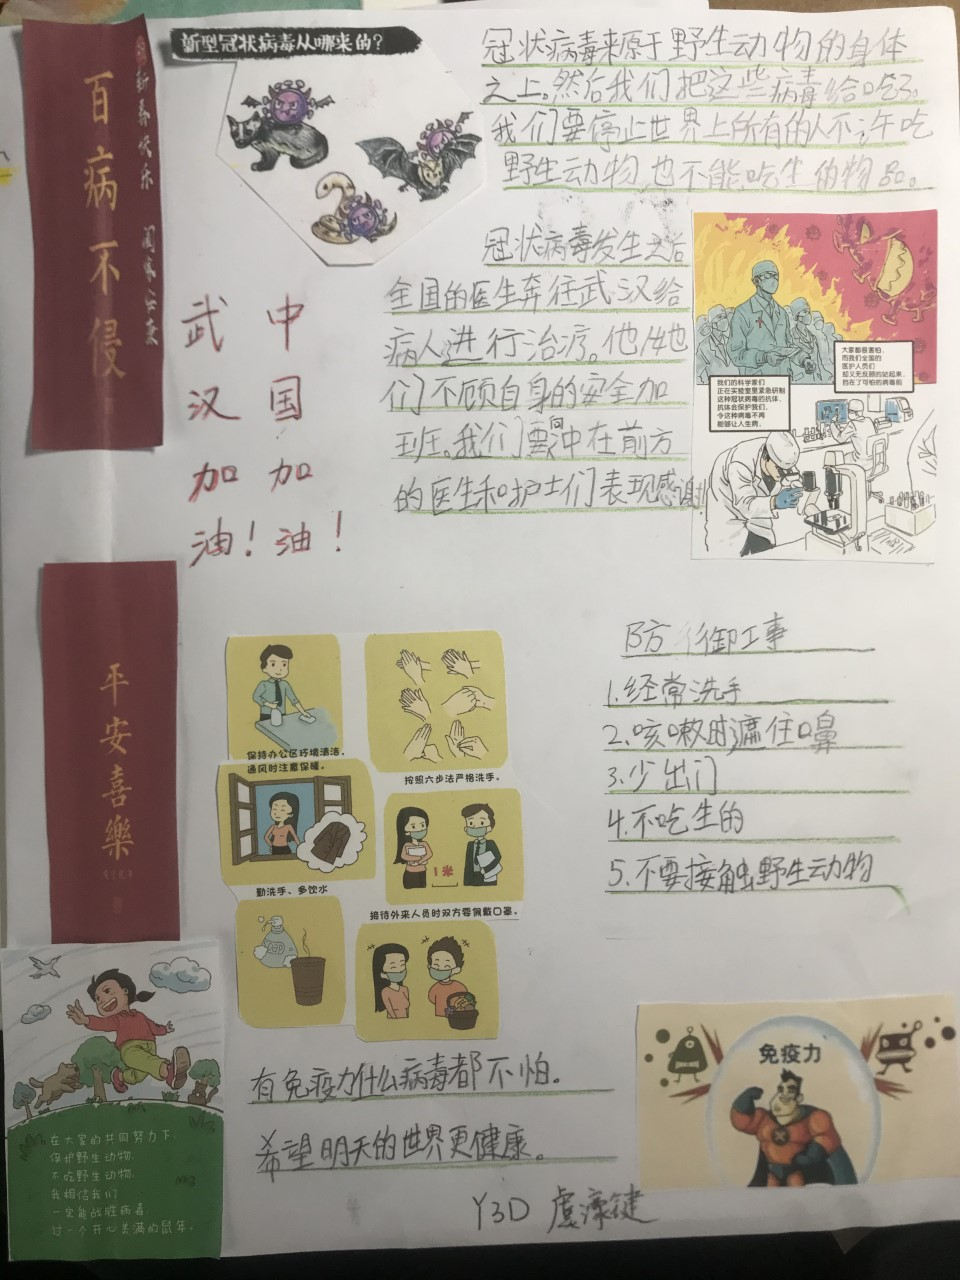 百病不侵
新春快乐
阖家安康
新型冠状病毒从哪来的？
冠状病毒来源于野生动物的身体
之上。然后我们把这些病毒给吃了。
我们要停止世界上所有的人不许吃
野生动物也不能吃生的物品。
武汉加油！
中国加油！
冠状病毒发生之后
全国的医生奔往武汉给
病人进行治疗。他/她
们不顾自身的安全加
班。我们要向冲在前方
的医生和护士们表现感谢
大家都很害怕，
而我们全国的
医护人员们
却义无反顾的站起来，
挡在了可怕的病毒前
我们的科学家们
正在实验室里紧急研制
这种冠状病毒的抗体，
抗体会保护我们，
令这种病毒不再
能够让人生病。
平安喜樂
保持办公区环境清洁，
通风时注意保暖。
按照六步法严格洗手。
1米
勤洗手、多饮水
接待外来人员时双方要佩戴口罩。
防御工事
1.经常洗手
2.咳嗽时遮住嘴鼻
3.少出门
4.不吃生的
5.不要接触野生动物
在大家的共同努力下，
保护野生动物，
不吃野生动物，
我相信我们
一定能战胜病毒
过一个开心美满的鼠年。
有免疫力什么病毒都不怕。
希望明天的世界更健康。
免疫力
Y3D